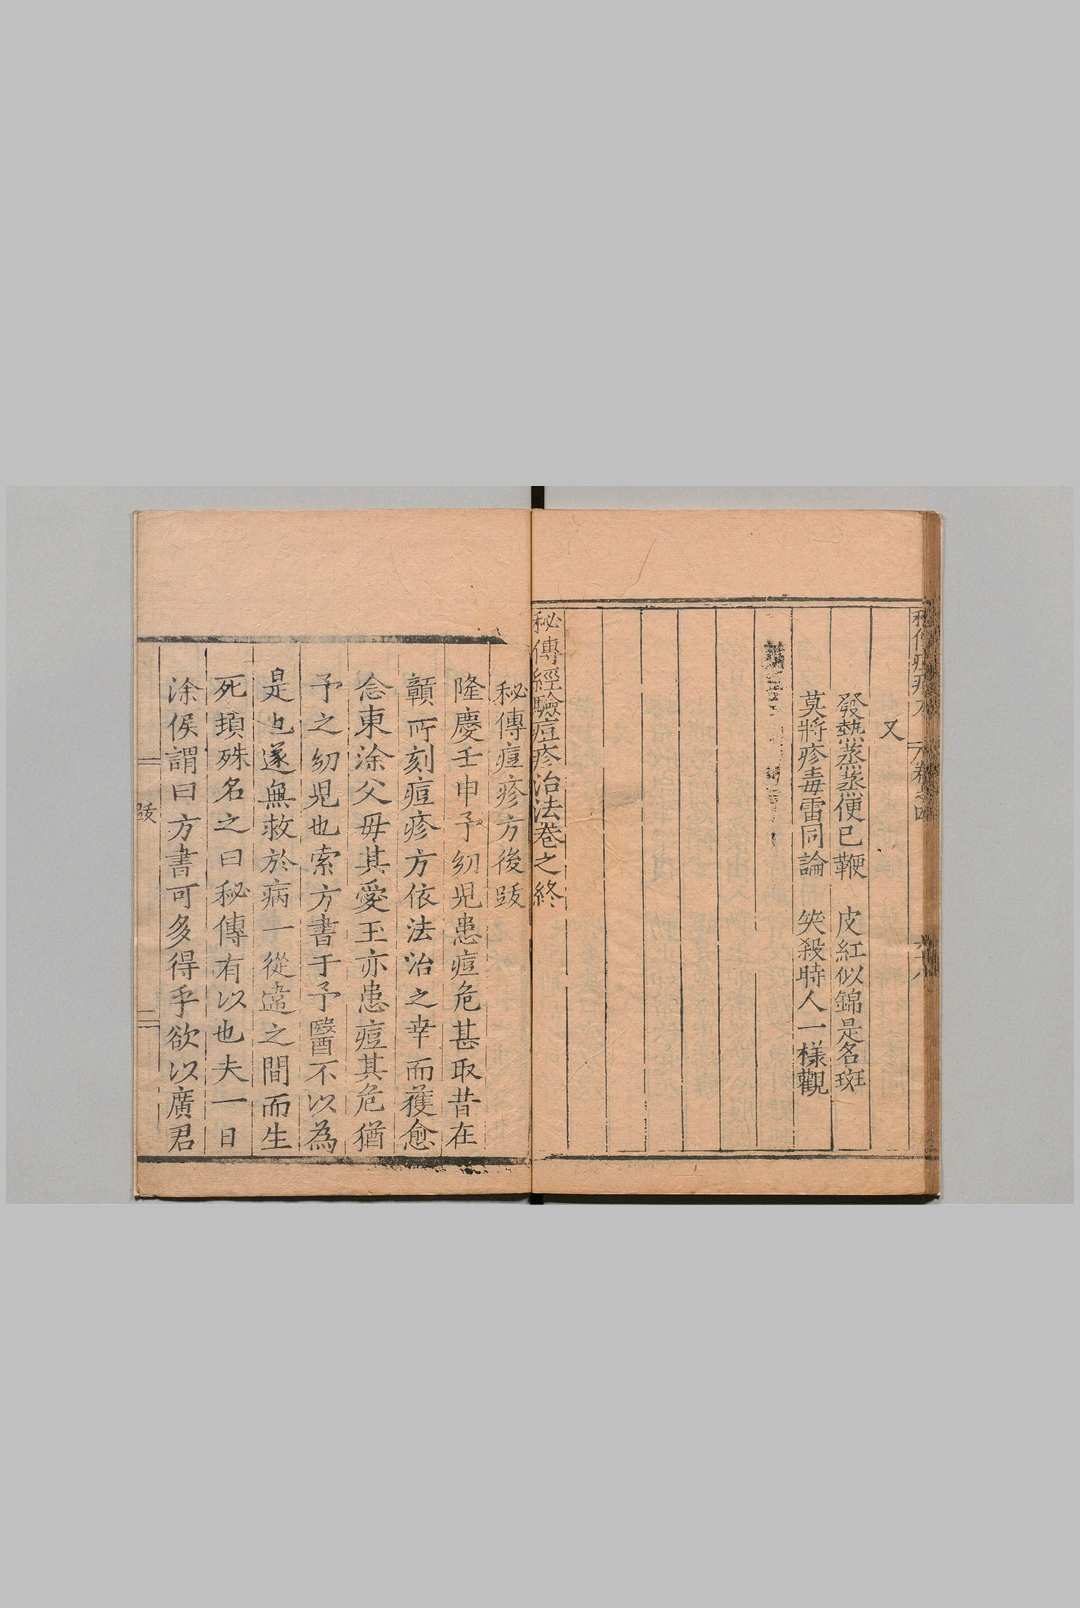 又
發熱蒸蒸便已鞕 皮紅似錦是名斑
莫將疹毒雷同論 笑殺時人一樣觀
秘傳經驗痘疹治法卷之終
秘傳痘疹方後跋
隆慶壬申予幼兒患痘危甚取昔在
贛所刻痘疹方依法治之幸而獲愈
念東涂父母其愛玉亦患痘其危猶
予之幼兒也索方書于予醫不以為
是也遂無救於病一從違之間而生
死頓殊名之曰秘傳有以也夫一日
涂侯謂曰方書可多得乎欲以廣君
跋